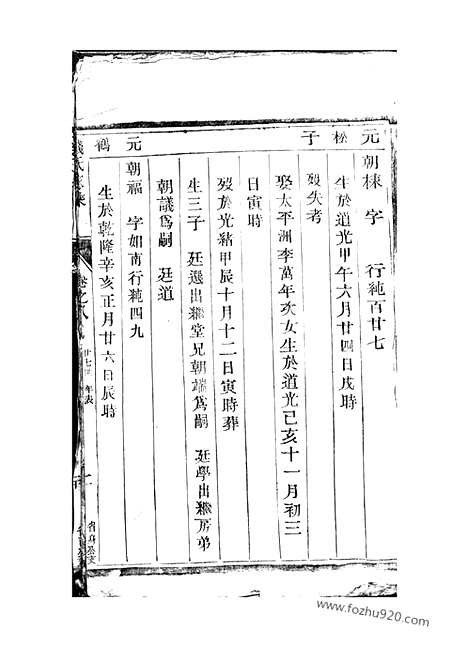 元松子
朝棟 字 行純百廿七
生於道光甲午六月廿四日戌時
歿失考
娶太平洲李萬年次女生於道光己亥十一月初三
日寅時
歿於光緒甲辰十月十二日寅時葬
生三子 廷選出繼堂兄朝端為嗣 廷學出繼房弟
朝議為嗣 廷道
元鶴
朝福 字如南行純四九
生於乾隆辛亥正月廿六日辰時
卷之八
廿七世 年表
www.fozhu920.com